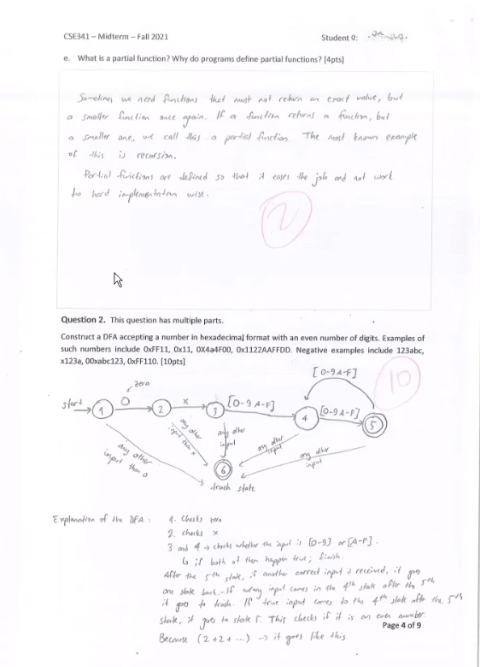 CSE341 – Midterm – Fall 2021
Student #:
e. What is a partial function? Why do programs define partial functions? [4pts]
Sometimes we need functions that must not return an exact value, but
a smaller function once again. If a function returns a function, but
a smaller one, we call this a partial function. The most known example
of this is recursion.
Partial functions are defined so that it eases the job and not work
too hard implementation wise.
2
Question 2. This question has multiple parts.
Construct a DFA accepting a number in hexadecimal format with an even number of digits. Examples of
such numbers include 0xFF11, 0x11, 0X4a4F00, 0x1122AAFFDD. Negative examples include 123abc,
x123a, 00xabc123, 0xFF110. [10pts]
10
[0-9 A-F]
zero
start
1
0
2
x
3
[0-9 A-F]
4
[0-9 A-F]
5
any other
input than 0
any other
input than x
any other
input
any other
input
any other
input
6
trash state
Explanation of the DFA :
1. Checks zero
2. checks x
3 and 4 → checks whether the input is [0-9] or [A-F].
↳ if both of them happen true, finish.
After the 5th state, if another correct input is received, it goes
one state back. If wrong input comes in the 4th state after the 5th
it goes to trash. If true input comes to the 4th state after the 5th
state, it goes to state 5. This checks if it is an even number.
Because (2+2+...) → it goes like this
Page 4 of 9